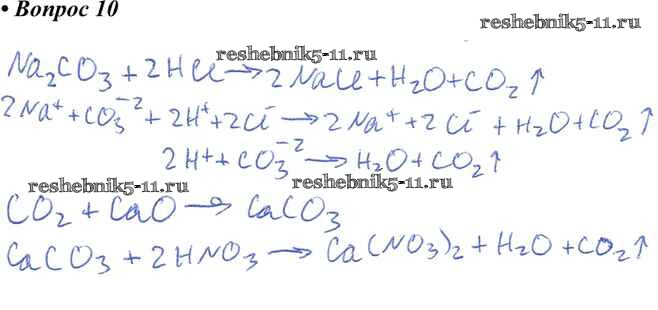 • Вопрос 10
reshebnik5-11.ru
reshebnik5-11.ru
Na₂CO₃ + 2HCl → 2NaCl + H₂O + CO₂↑
2Na⁺ + CO₃⁻² + 2H⁺ + 2Cl⁻ → 2Na⁺ + 2Cl⁻ + H₂O + CO₂↑
2H⁺ + CO₃⁻² → H₂O + CO₂↑
reshebnik5-11.ru
reshebnik5-11.ru
CO₂ + CaO → CaCO₃
CaCO₃ + 2HNO₃ → Ca(NO₃)₂ + H₂O + CO₂↑